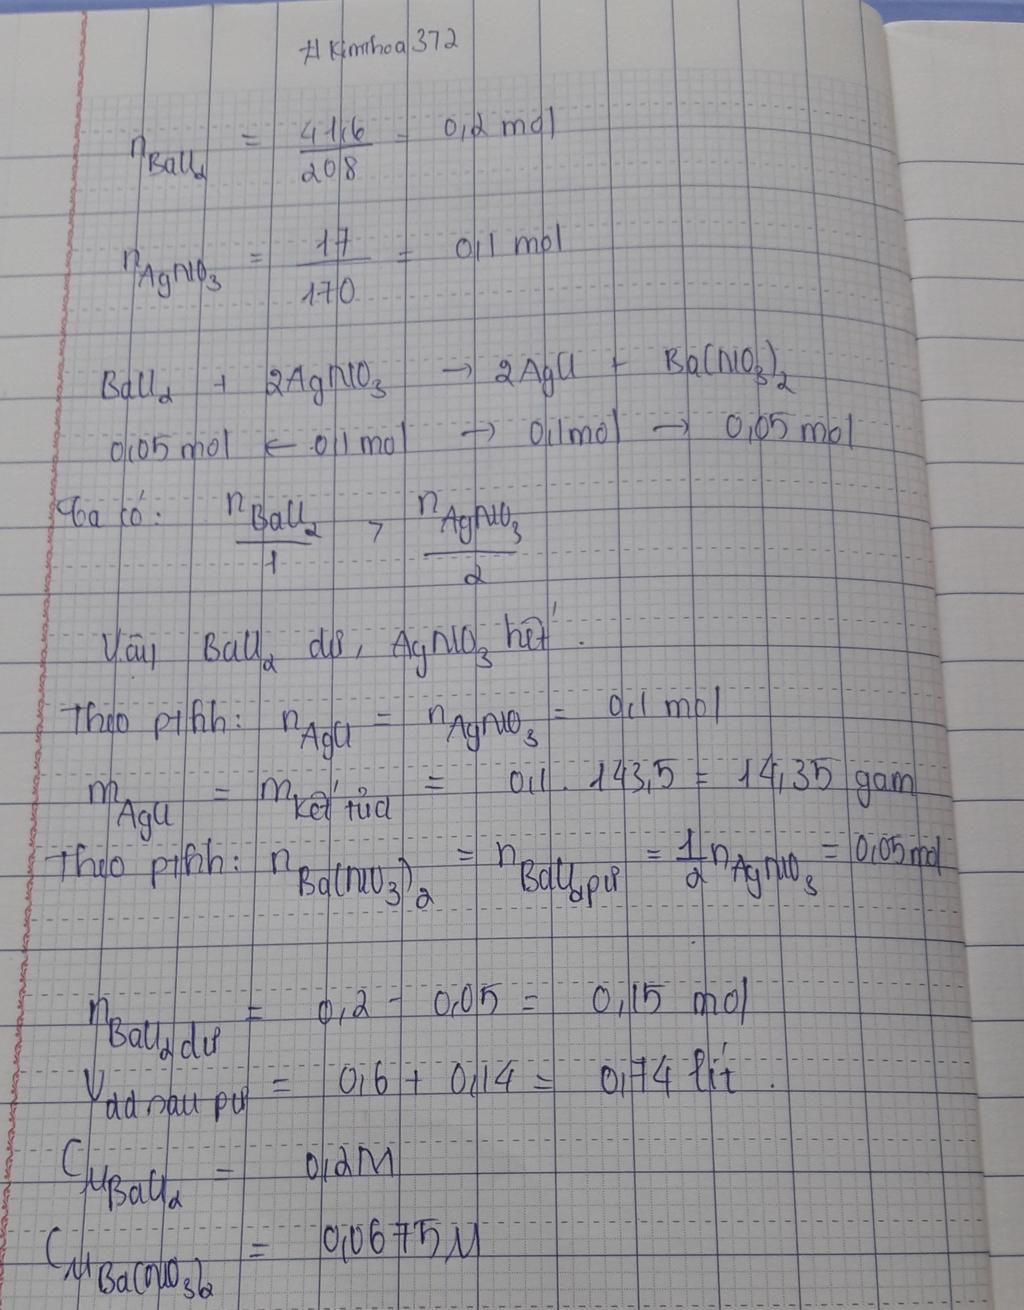 # Kimhoa372
nBaCl2 = 41,6/208 = 0,2 mol
nAgNO3 = 17/170 = 0,1 mol
BaCl2 + 2AgNO3 → 2AgCl + Ba(NO3)2
0,05 mol ← 0,1 mol → 0,1 mol → 0,05 mol
Ta có: nBaCl2/1 > nAgNO3/2
Vậy BaCl2 dư, AgNO3 hết.
Theo pthh: nAgCl = nAgNO3 = 0,1 mol
mAgCl = mkết tủa = 0,1 . 143,5 = 14,35 gam
Theo pthh: nBa(NO3)2 = nBaCl2pứ = 1/2 nAgNO3 = 0,05 mol
nBaCl2 dư = 0,2 - 0,05 = 0,15 mol
Vdd sau pứ = 0,6 + 0,14 = 0,74 lít.
CMBaCl2 = 0,2M
CMBa(NO3)2 = 0,0675M